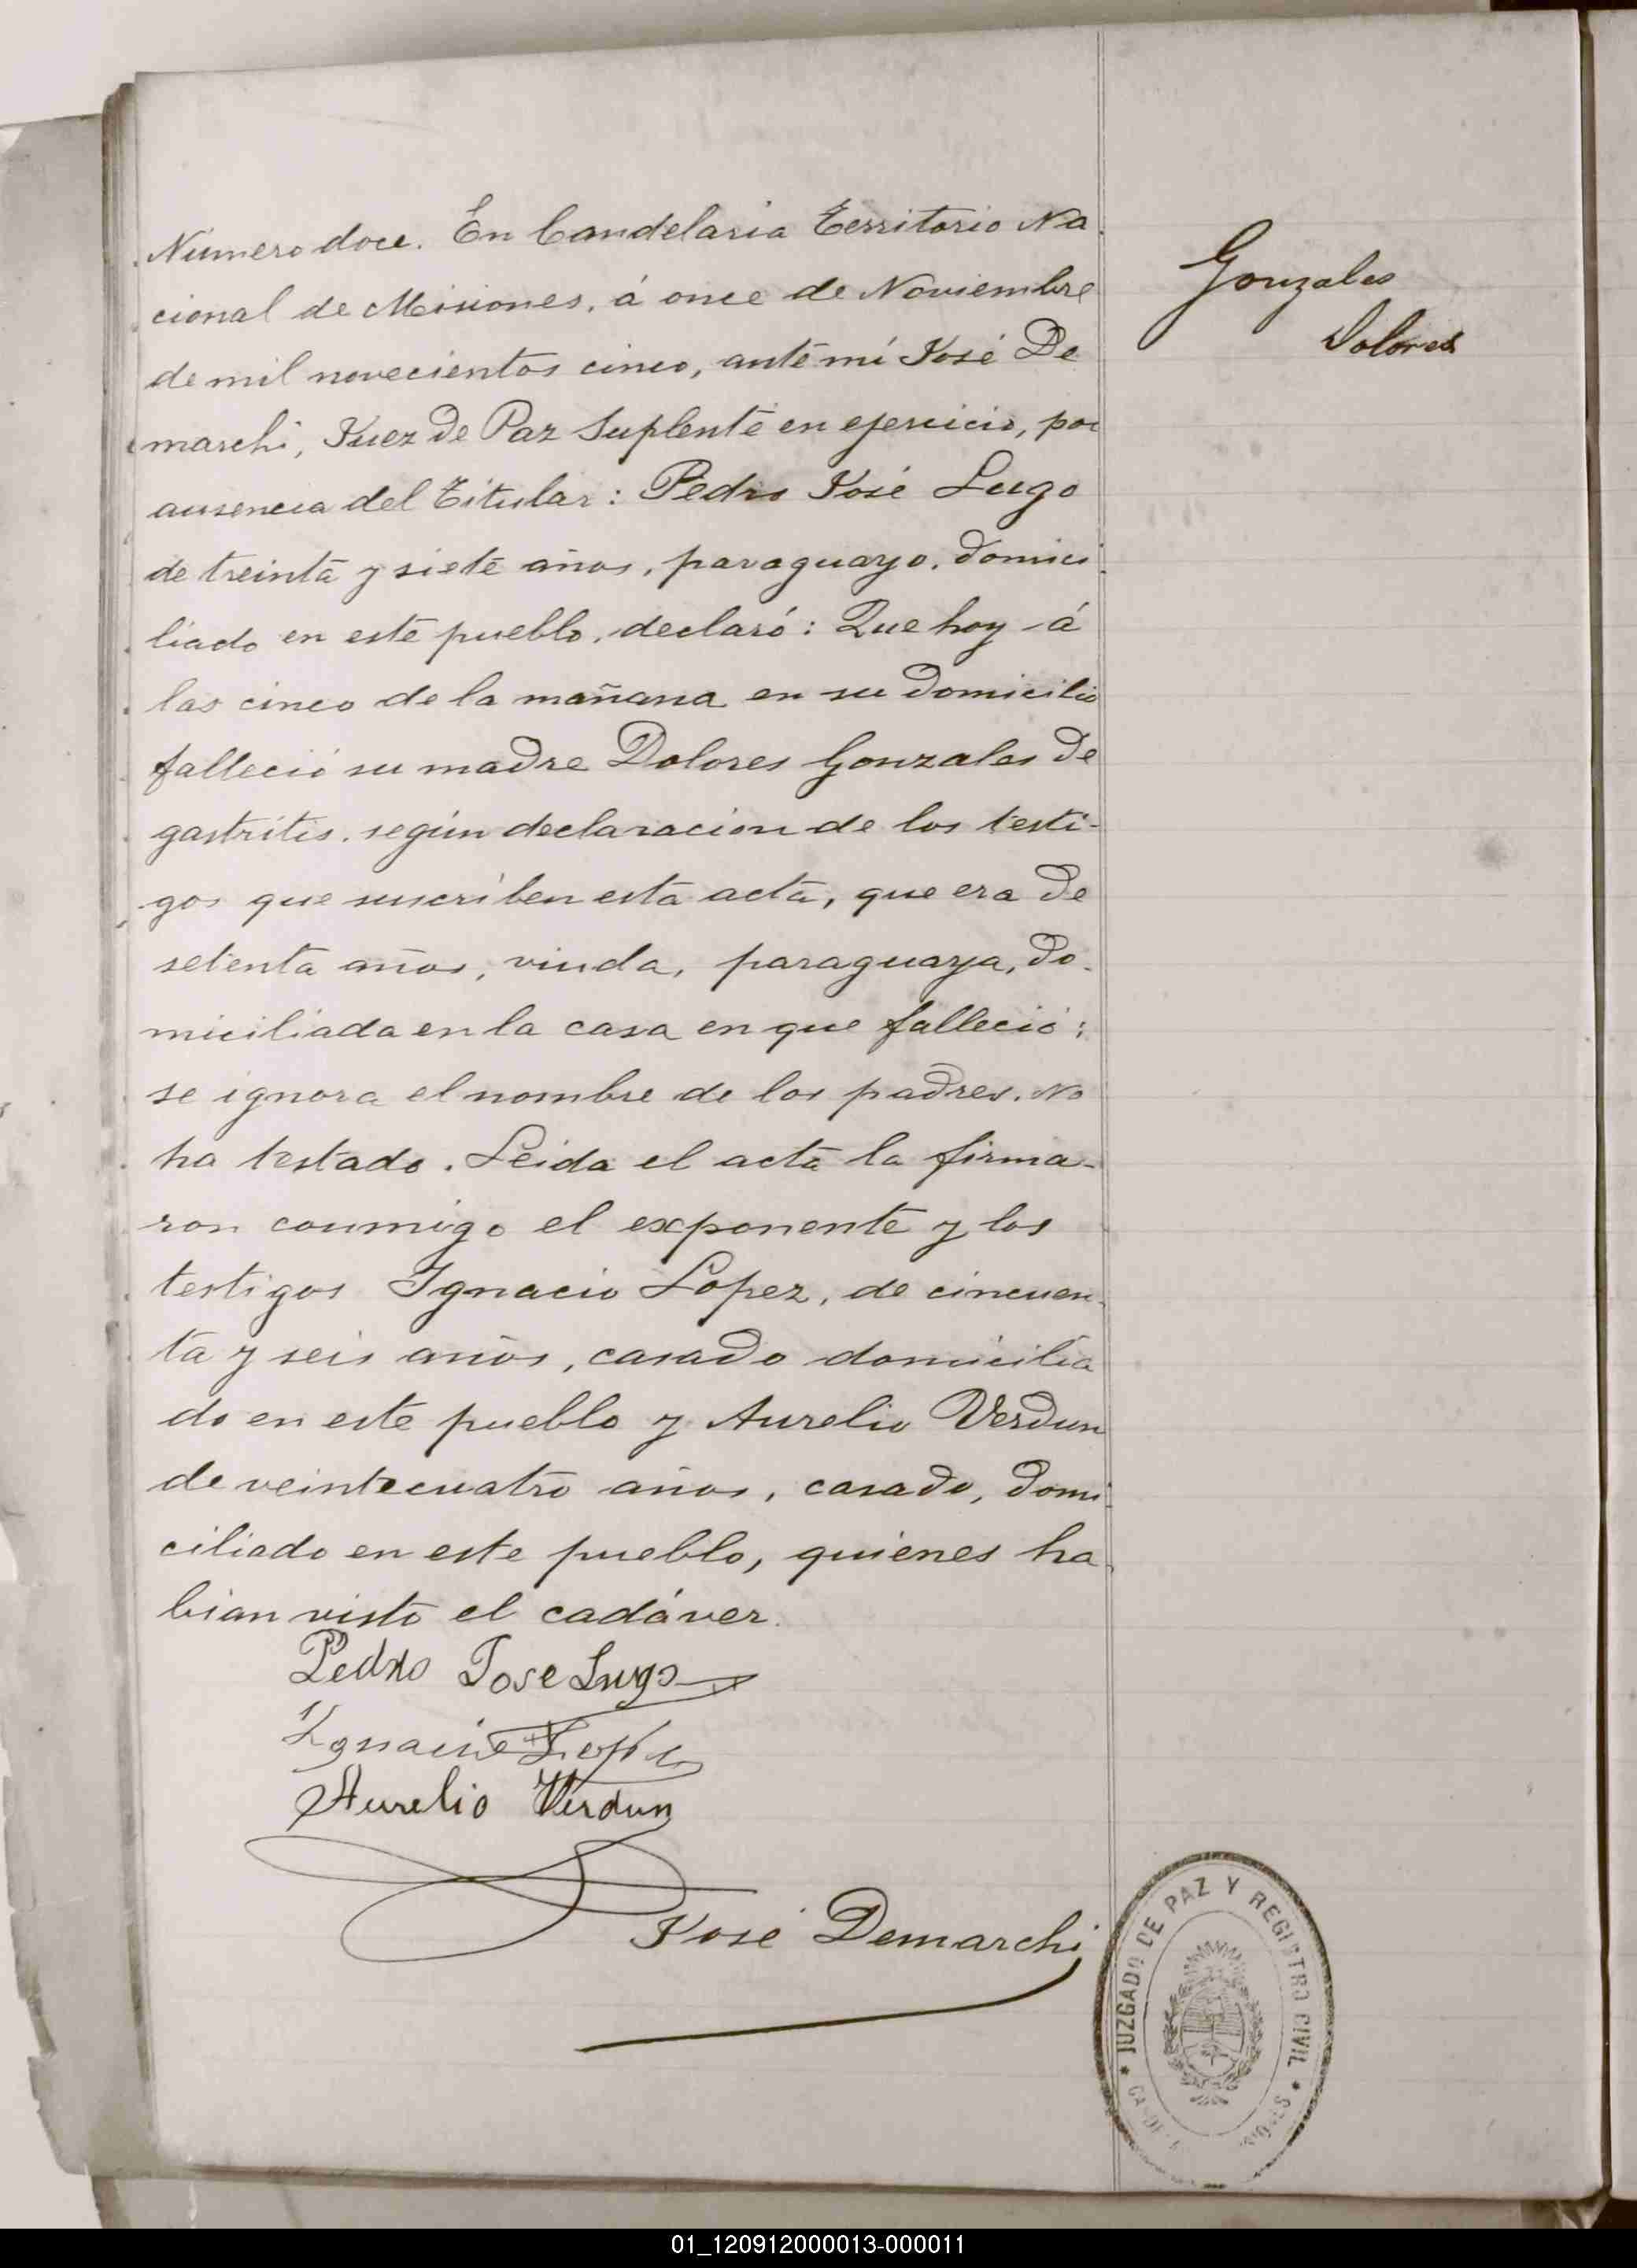 Número doce. En Candelaria Territorio Na
cional de Misiones, á once de Noviembre
de mil novecientos cinco, ante mí José De
marchi, Juez de Paz Suplente en ejercicio, por
ausencia del Titular: Pedro José Lugo
de treinta y siete años, paraguayo, domici
liado en este pueblo, declaró: Que hoy á
las cinco de la mañana en su domicilio
falleció su madre Dolores Gonzales de
gastritis, según declaracion de los testi-
gos que suscriben esta acta, que era de
setenta años, viuda, paraguaya, do-
miciliada en la casa en que falleció;
se ignora el nombre de los padres. No
ha testado. Leida el acta la firma-
ron conmigo el exponente y los
testigos Ignacio Lopez, de cincuen-
ta y seis años, casado domicilia
do en este pueblo y Aurelio Verdun
de veintecuatro años, casado, domi
ciliado en este pueblo, quienes ha
bian visto el cadáver.
Gonzales
Dolores
Pedro Jose Lugo
Ygnacio Lopez
Aurelio Verdun
José Demarchi
* JUZGADO DE PAZ Y REGISTRO CIVIL *
01_120912000013-000011